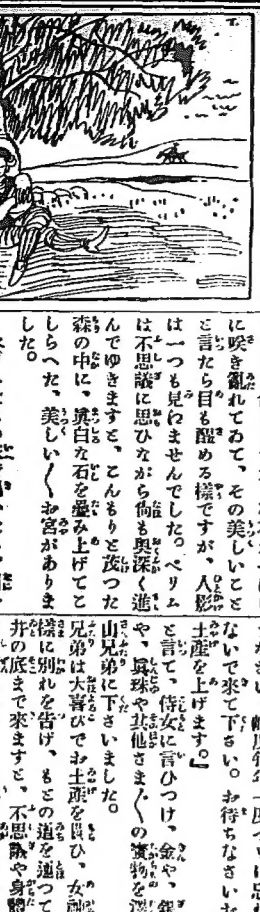 に咲き亂れてゐて、その美しいこと
と言たら目も醒める樣ですが、人影
は一つも見ねませんでした。ペリム
は不思議に思ひながら尙も奥深く進
んでゆきますと、こんもりと茂つた
森の中に、眞白な石を疊み上げてこ
しらへた、美しい〱お宮がありま
した。
ないで來て下さい。お待ちなさいお
土産を上げます。』
と言て、侍女に言ひつけ、金や、銀
や、眞珠や其他さま〲の寶物を澤
山兄弟に下さいました。
兄弟は大喜びでお土産を貰ひ、女神
樣に別れを告げ、もとの道を通つて
井の底まで來ますと、不思議や身體